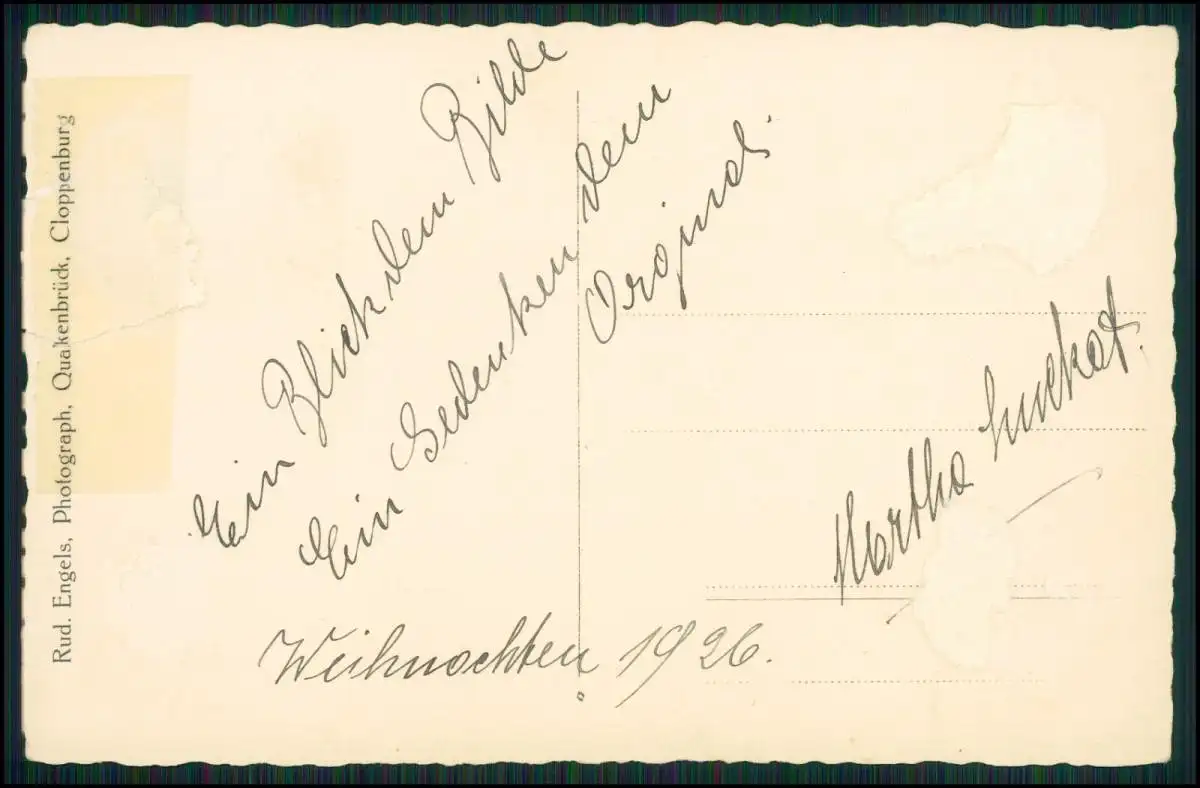 Rud. Engels, Photograph, Quakenbrück, Cloppenburg
Ein Blick dem Bilde
Ein Gedenken dem
Orginal.
Martha
Weihnachten 1926.